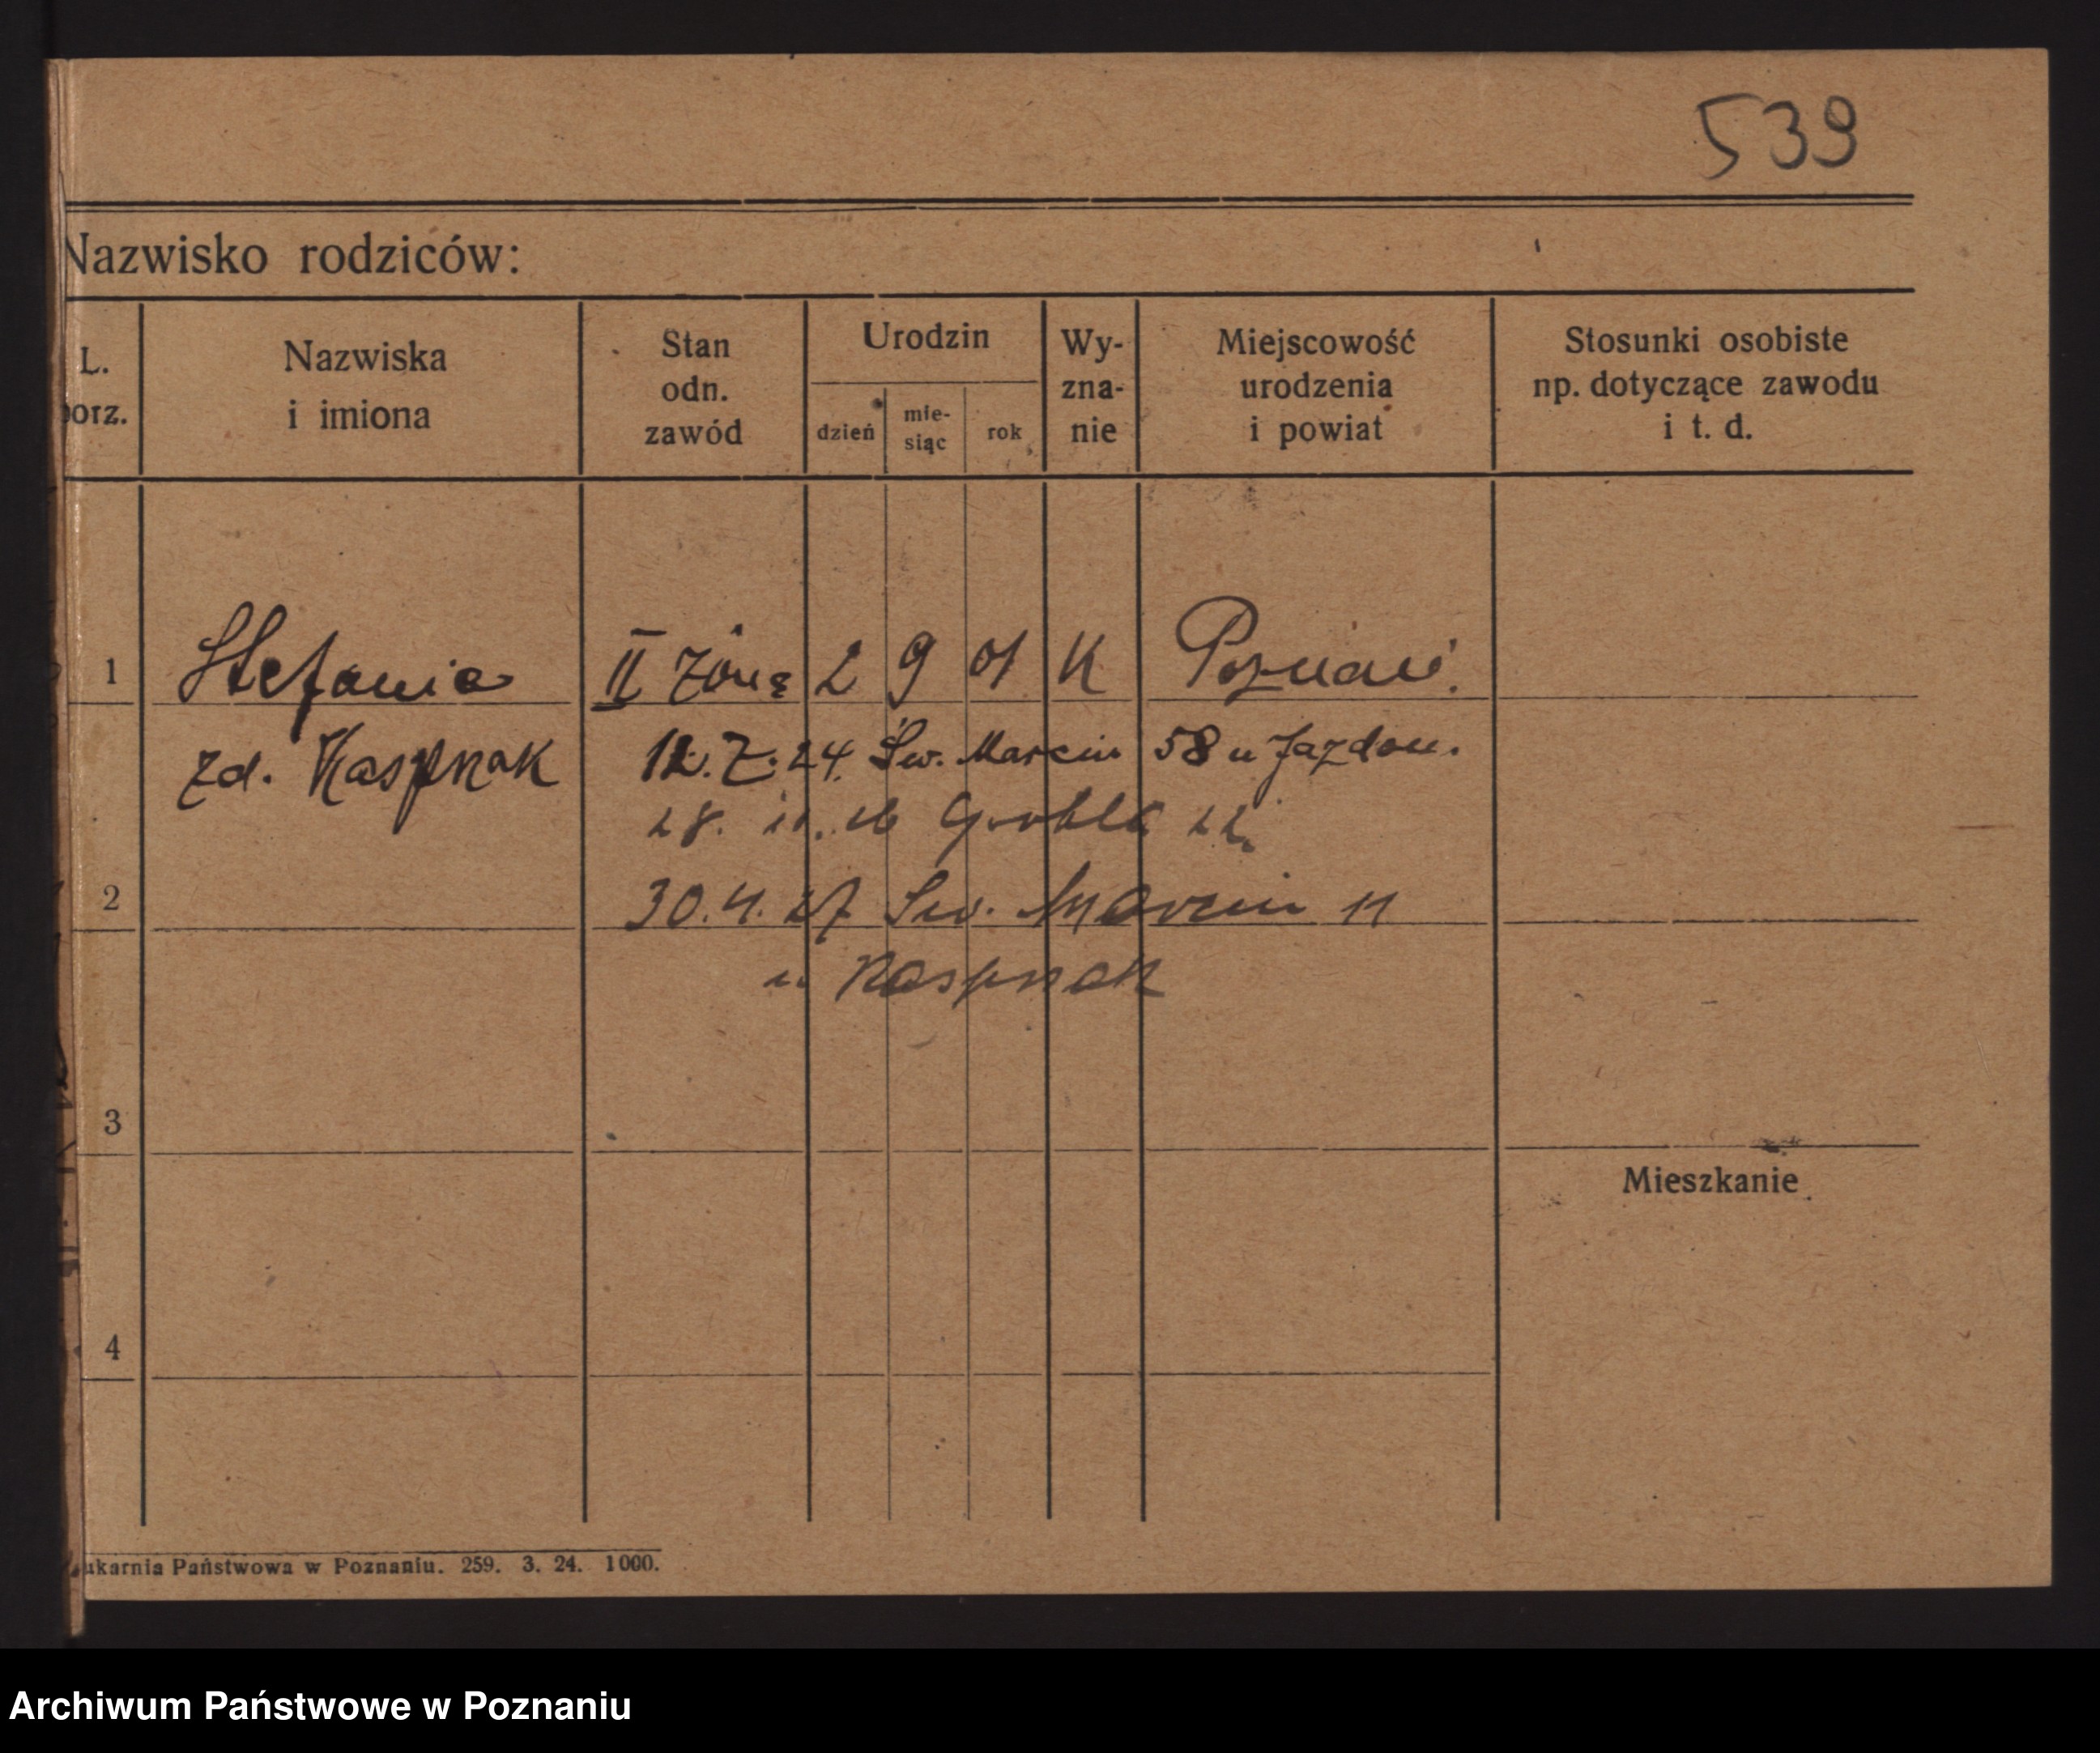 539
Nazwisko rodziców:
L. porz. Nazwiska i imiona Stan odn. zawód Urodzin dzień mie- siąc rok Wy- zna- nie Miejscowość urodzenia i powiat Stosunki osobiste np. dotyczące zawodu i t. d.
1 Stefania II żona 2 9 01 K Poznań.
zd. Kaspnak 12. 7. 24. Św. Marcin 58 u Jazdon.
28. 11. 26 Grobla 22.
2 30. 4. 27 Św. Marcin 11
u Kaspnak
3
Mieszkanie
4
ukarnia Państwowa w Poznaniu. 259. 3. 24. 1000.
Archiwum Państwowe w Poznaniu